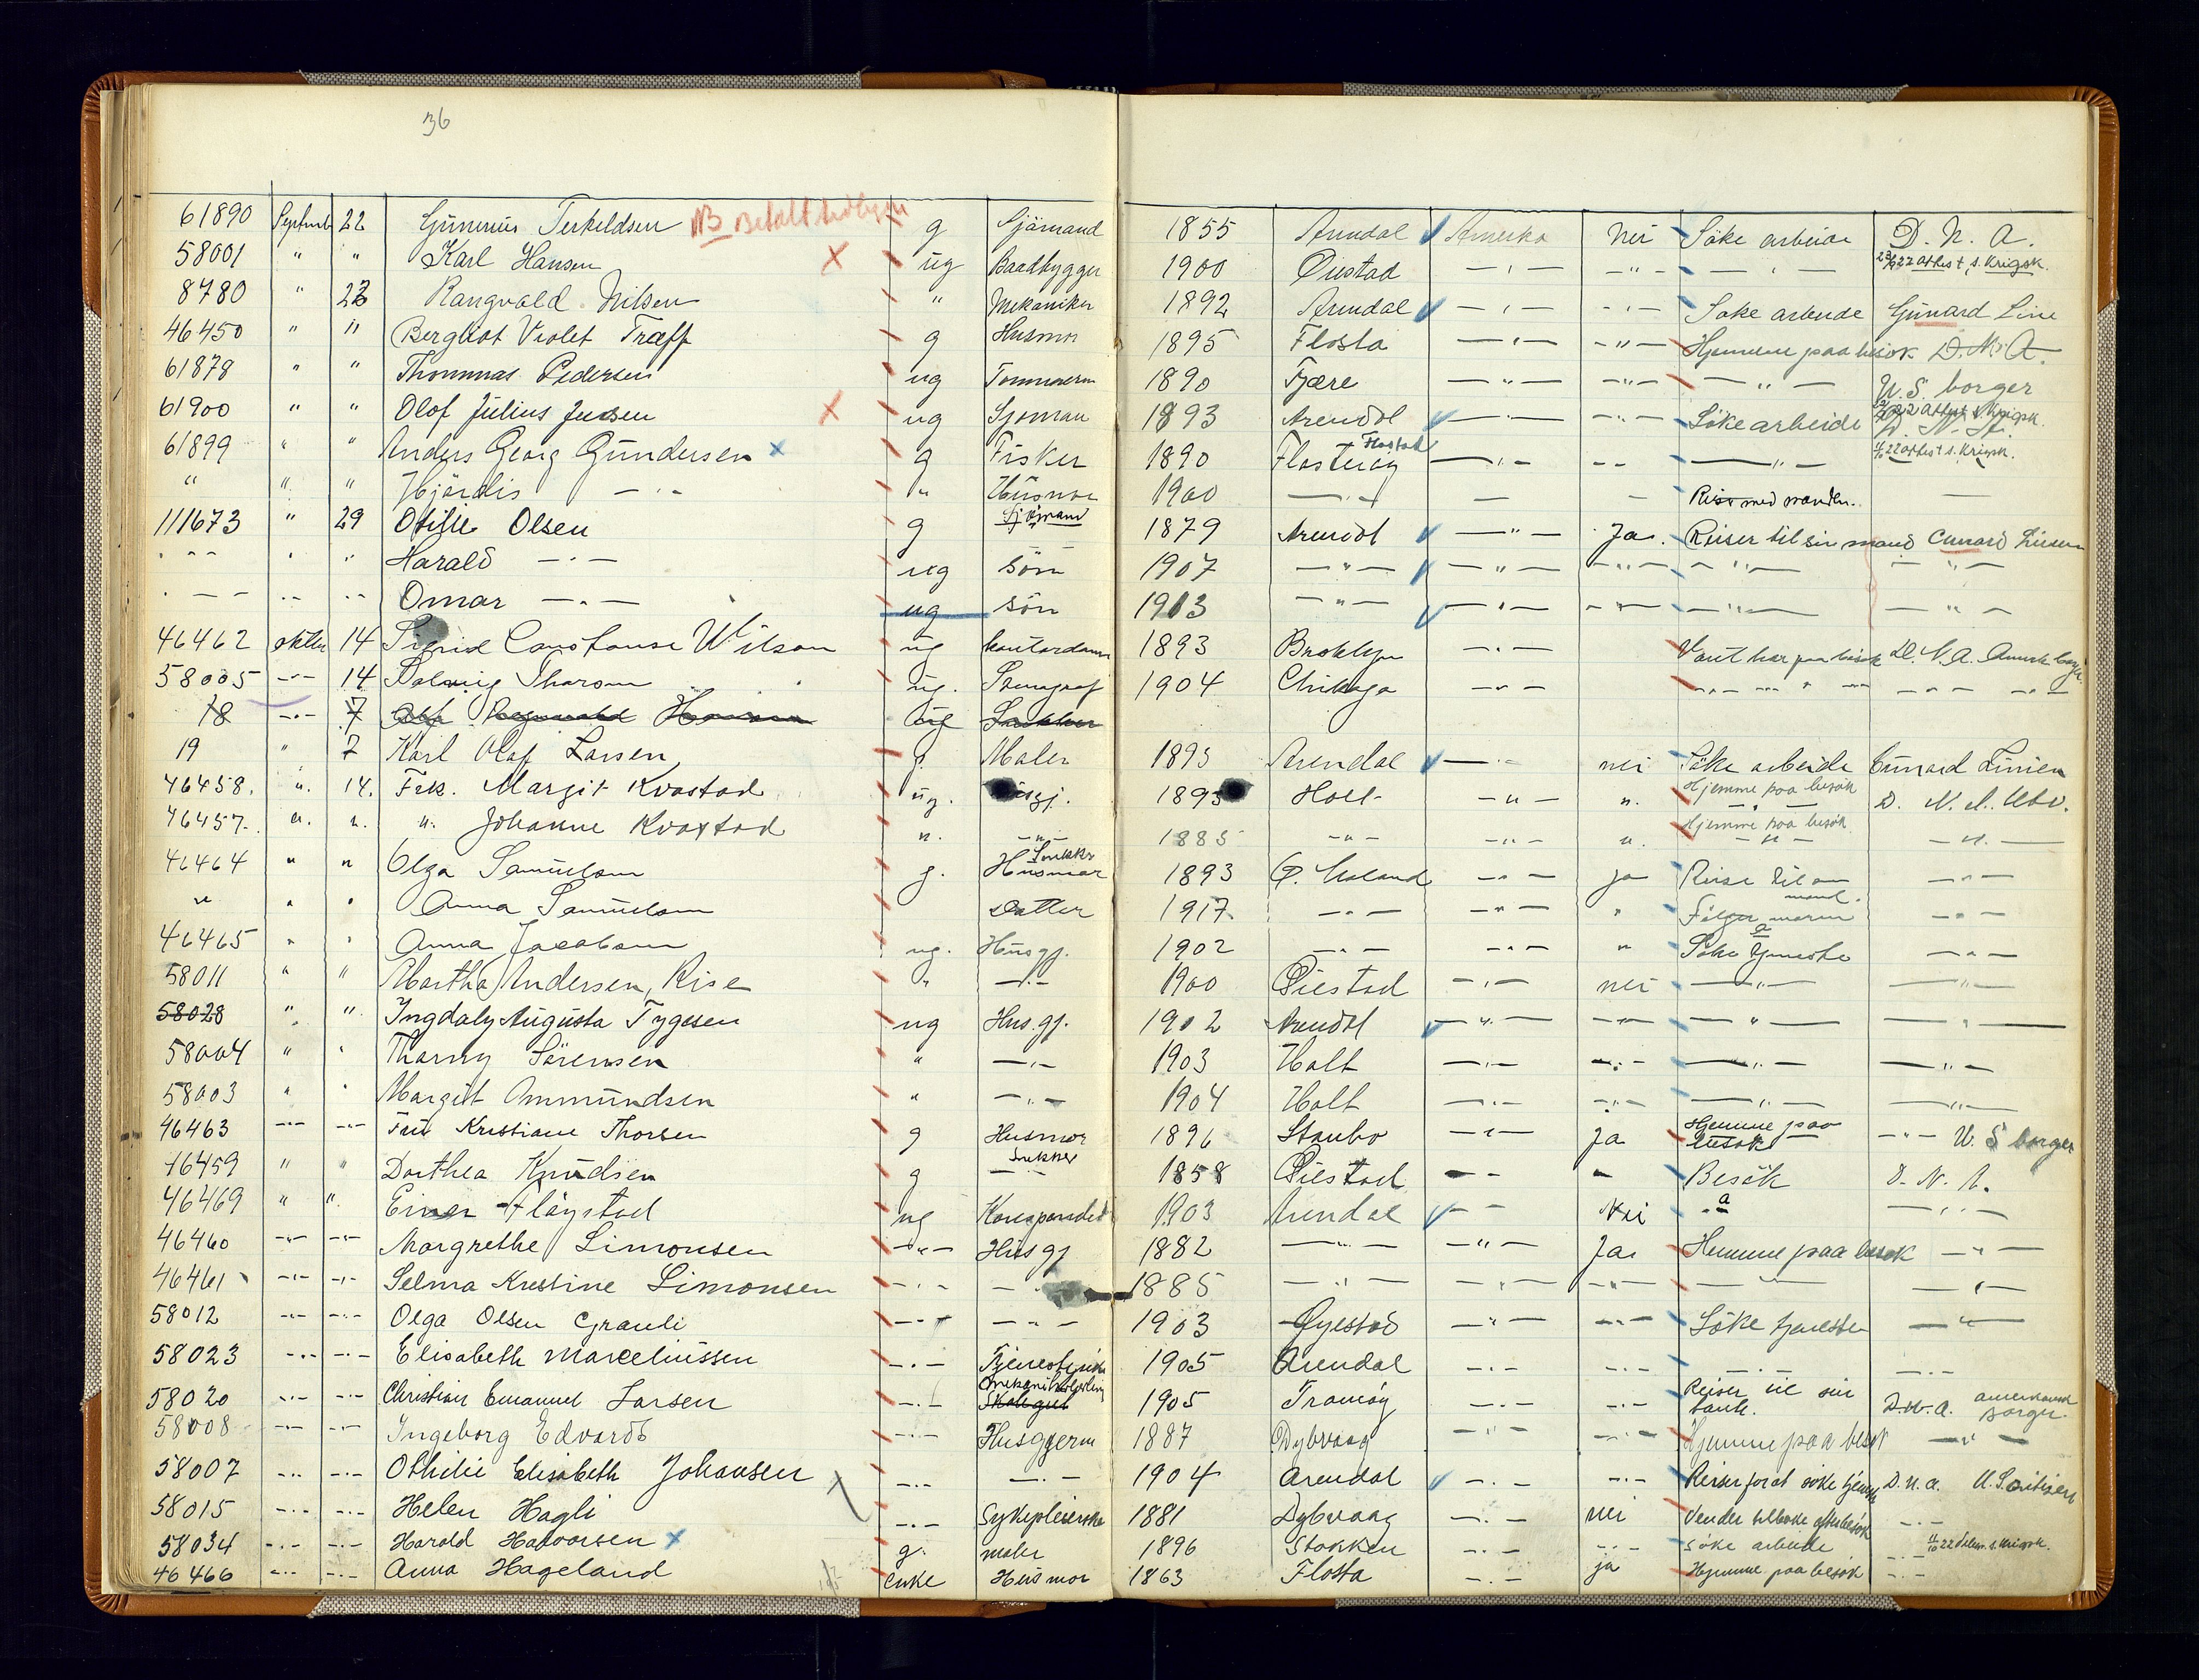 36
61890 Septemb 22 Gunnius Terkeldsen NB Betalt g Sjömand 1855 Arendal Amerika Nei Söke arbeide D. N. A.
58001 " " Karl Hansen X ug Baadbygger 1900 Öiestad — " — — " — — " — 22 attest s. Krigsk.
8780 " 23 Rangvald Nilsen " Mekaniker 1892 Arendal — " — — " — Söke arbeide Cunard Line
46450 " " Bergliot Violet Træff g Husmor 1895 Flosta — " — — " — Hjemme paa besök D. N. A.
61878 " " Thommas Pedersen ug Tømmerm 1890 Fjære — " — — " — — " — U. S. borger
61900 " " Olof Julius Jensen X ug Sjoman 1893 Arendal — " — — " — Söke arbeide 22 attest s. Krigsk. D. N. A.
61899 " " Anders Georg Gundersen x g Fisker 1890 Flosterøy Flostad — " — — — — " — 22 attest s. Krigsk.
" " " Hjördis — " — " Husmor 1900 — " — — — Reise med manden. —
111673 " 29 Otilie Olsen g Sjömand 1879 Arendal — " — Ja. Reiser til sin mand Cunard Linien
" " " Harald — " — ug Sön 1907 — " — — " — — " — — " — — " —
" " " Omar — " — ug Sön 1913 — " — — " — — " — — " — — " —
46462 oktbr 14 Sigrid Constanse Wilson ug kontordame 1893 Broklyn — " — Vært her paa besök D. N. A. Amrk borger
58005 — " — 14 Solveig Thorsen ug. Stenograf 1904 Chikago — " — — " — — " —
18 — " — 7 Alf Ragnvald Hansen ug Snekker
19 " 7 Karl Olaf Larsen g. Maler 1895 Arendal — " — nei Söke arbeide Cunard Linien
46458. ". 14. Frk. Margit Kvastad ug. Husgj. 1895 Holt — " — ". Hjemme paa besök — " — D. N. A.
46457. ". ". ". Johanne Kvastad ". — " — 1885 — " — — " — ". Hjemme paa besök — " — — " —
46464 " " Olga Samuelsen g. Snekker Husmor 1893 Ö. Moland — " — ja Reise til sin mand. — " —
" " " Anna Samuelsen Datter 1917. — " — — " — " Følger moren — " —
46465 " " Anna Jacobsen ug. Husgj. 1902 — " — — " — " Söke tjeneste — " —
58011 " " Martha Andersen, Rise " — " — 1900 Öiestad — " — nei — " — — " —
58028 " " Ingdaly Augusta Tygesen ug Hus.gj. 1902 Arendal — " — — " — — " — — " —
58004 " " Thorny Sörensen " — " — 1903 Holt — " — — " — — " — — " —
58003 " " Margit Ommundsen " — " — 1904 Holt — " — — " — — " — — " —
46463 — " — — " — Fru Kristiane Thorsen g Husmor 1896 Staubo — " — ja Hjemme paa besök — " — U. S borger
46459 " " Dorthea Knudsen g Snekker — " — 1858 Öiestad — — — Besök D. N. A.
46469 " " Einar Fløystad ug Korespondent 1903 Arendal — " — Nei — " — — " —
46460 — " — — " — Margrethe Simonsen — " — Husgj 1882 — " — — " — Ja. Hjemme paa besök — " —
46461 — " — — " — Selma Kristine Simonsen — " — — " — 1885 — " — — " — — " — — " — — " —
58012 — " — — " — Olga Olsen Grauli — " — — " — 1903 Öyestad — " — — " — Söke tjeneste — " —
58023 — " — — " — Elisabeth Marceliussen — " — Tjenestepike 1905 Arendal — " — — " — — " — — " —
58020 — " — — " — Christian Emanuel Larsen — " — Skolegut 1905 Tromöy — " — — " — Reiser til sin tante. D.N.A. amerikansk borger.
58008 — " — — " — Ingeborg Edvards — " — Husgjerni 1887 Dybvaag — " — — " — Hjemme paa besök — " —
58007 — " — — " — Othilie Elisabeth Johansen — " — — " — 1904 Arendal — " — — " — Reiser for at söke tjeneste D.N.A. U.S. citizen
58015 — " — — " — Helen Hagli — " — Sykepleierske 1881 Dybvaag — " — nei Vender tilbake efter besök — " —
58034 — " — — " — Harald Halvorsen x g. maler 1896 Stokken — " — — " — söke arbeide — " — 22 s. Krigsk.
46466 — " — — " — Anna Hageland enke Husmor 1863 Flosta — " — ja Hjemme paa besök — " —